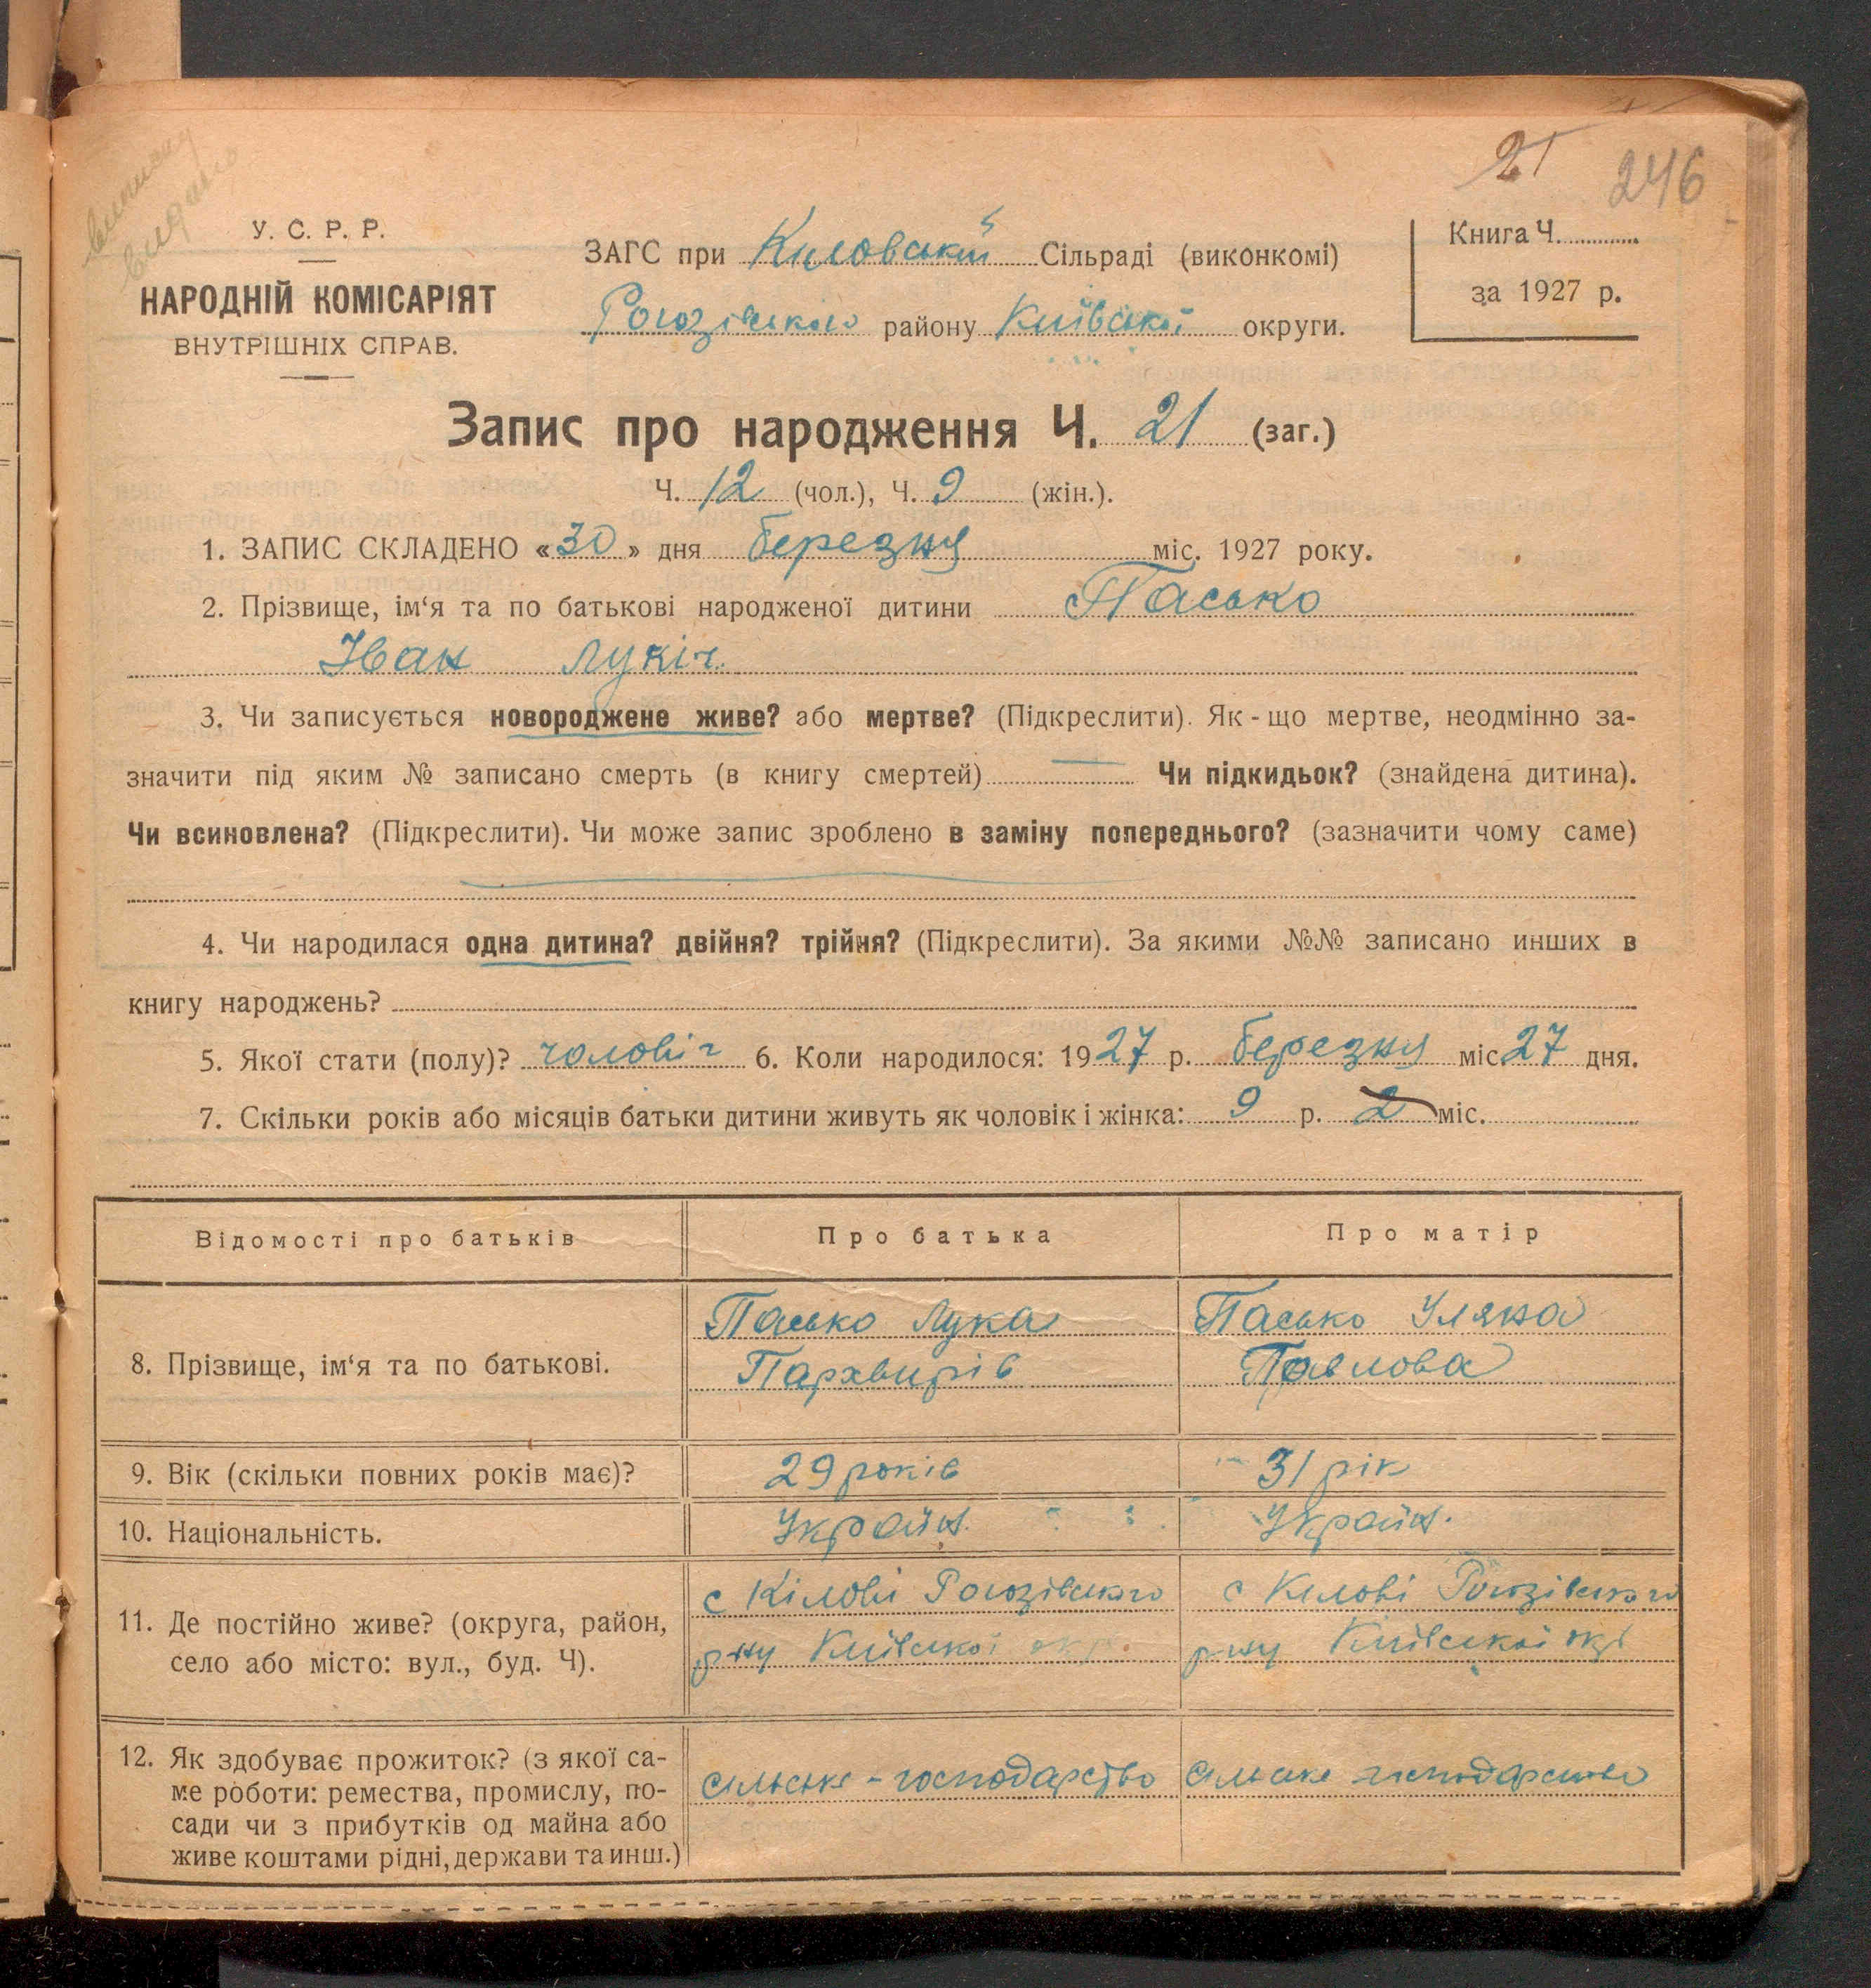 виписку
видано
21
246
У. С. Р. Р.
НАРОДНІЙ КОМІСАРІЯТ
ВНУТРІШНІХ СПРАВ.
ЗАГС при Киловській Сільраді (виконкомі)
Рогозівського району Київської округи.
Книга Ч.
за 1927 р.
Запис про народження Ч. 21 (заг.)
Ч. 12 (чол.), Ч. 9 (жін.).
1. ЗАПИС СКЛАДЕНО «30» дня березня міс. 1927 року.
2. Прізвище, ім'я та по батькові народженої дитини Пасько
Іван Лукіч.
3. Чи записується новороджене живе? або мертве? (Підкреслити). Як-що мертве, неодмінно за-
значити під яким № записано смерть (в книгу смертей) — Чи підкидьок? (знайдена дитина).
Чи всиновлена? (Підкреслити). Чи може запис зроблено в заміну попереднього? (зазначити чому саме)
4. Чи народилася одна дитина? двійня? трійня? (Підкреслити). За якими №№ записано инших в
книгу народжень?
5. Якої стати (полу)? чоловіч 6. Коли народилося: 1927 р. березня міс. 27 дня.
7. Скільки років або місяців батьки дитини живуть як чоловік і жінка: 9 р. 2 міс.
Відомості про батьків Про батька Про матір
8. Прізвище, ім'я та по батькові.
Пасько Лука
Пархвирів
Пасько Уляна
Павлова
9. Вік (скільки повних років має)? 29 років 31 рік
10. Національність. Україн. Україн.
11. Де постійно живе? (округа, район,
село або місто: вул., буд. Ч).
с Кілові Рогозівського
р-ну Київської окр.
с Кілові Рогозівського
р-ну Київської окр
12. Як здобуває прожиток? (з якої са-
ме роботи: ремества, промислу, по-
сади чи з прибутків од майна або
живе коштами рідні, держави та инш.)
сільське-господарство
сільське господарство